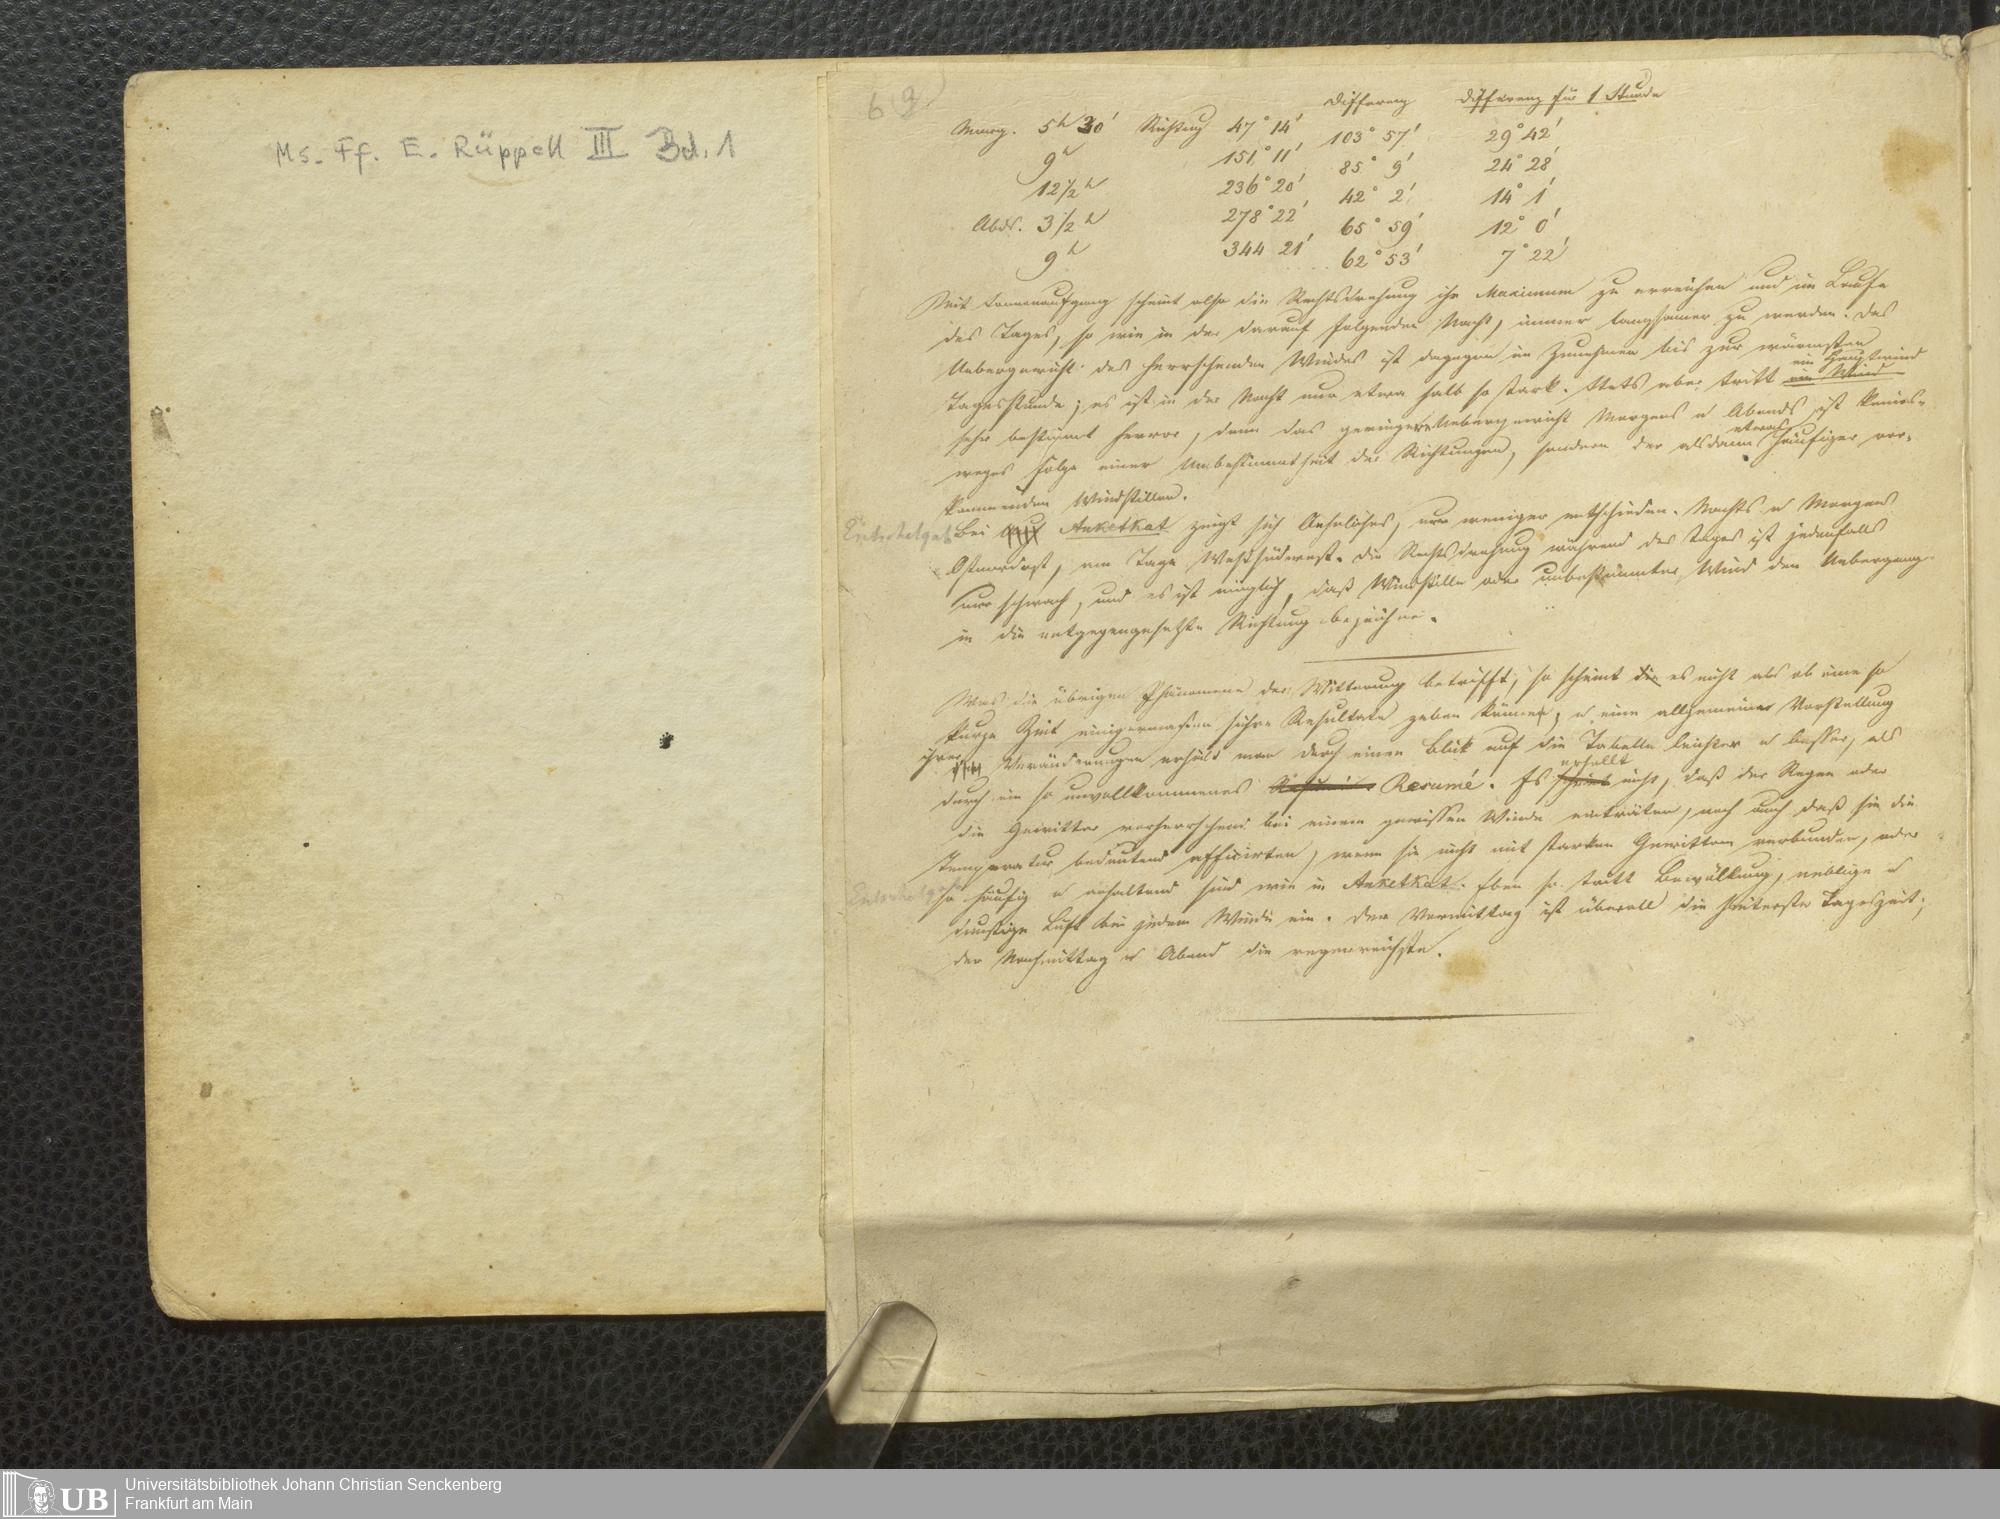 Ms. Ff. E. Rüppell III Bd. 1
69
Differenz Differenz für 1 Stunde
Morg. 5h 30' Richtung 47° 14' 103° 57' 29° 42'
9h 151° 11' 85° 9' 24° 28'
12 1/2 h 236° 20' 42° 2' 14° 1'
Abds. 3 1/2 h 278° 22' 65° 59' 12° 0'
9h 344 21' 62° 53' 7° 22'
Mit Sonnenaufgang scheint also die Rechtsdrehung ihr Maximum zu erreichen und im Laufe
des Tages, so wie in der darauf folgenden Nacht, immer langsamer zu werden. Das
Uebergewicht des herrschenden Windes ist dagegen im Zunehmen bis zur wärmsten
Tagesstunde; es ist in der Nacht nur etwa halb so stark. Stets aber tritt ein Wind ein Hauptwind
sehr bestimmt hervor, denn das geringere Uebergewicht Morgens u Abends ist keines-
weges Folge einer Unbestimmtheit der Richtungen, sondern der alsdann etwas häufiger vor-
kommenden Windstillen.
Entschetqab Bei Anketkat zeigt sich Aehnliches, nur weniger entschieden. Nachts u Morgens
Ostnordost, am Tage Westsüdwest. Die Rechtsdrehung während des Tages ist jedenfalls
nur schwach, und es ist möglich, daß Windstille oder unbestimmter Wind den Uebergang
in die entgegengesetzte Richtung bezeichne.
Was die übrigen Phänomene der Witterung betrifft, so scheint die es nicht als ob eine so
kurze Zeit einigermaßen sichre Resultate geben könne, u eine allgemeine Vorstellung
ihrer Veränderungen erhält man durch einen Blick auf die Tabelle leichter u besser, als
durch ein so unvollkommenes Resumé. Es scheint erhellt nicht, daß der Regen oder
die Gewitter vorherrschend bei einem gewissen Winde einträten, noch auch daß sie die
Temperatur bedeutend afficirten, wenn sie nicht mit starken Gewittern verbunden, oder
so häufig u anhaltend sind wie in Anketkat. Eben so tritt Bewölkung, neblige u
dunstige Luft bei jedem Winde ein. Der Vormittag ist überall die heiterste Tageszeit;
der Nachmittag u Abend die regenreichste.
UB
Universitätsbibliothek Johann Christian Senckenberg
Frankfurt am Main